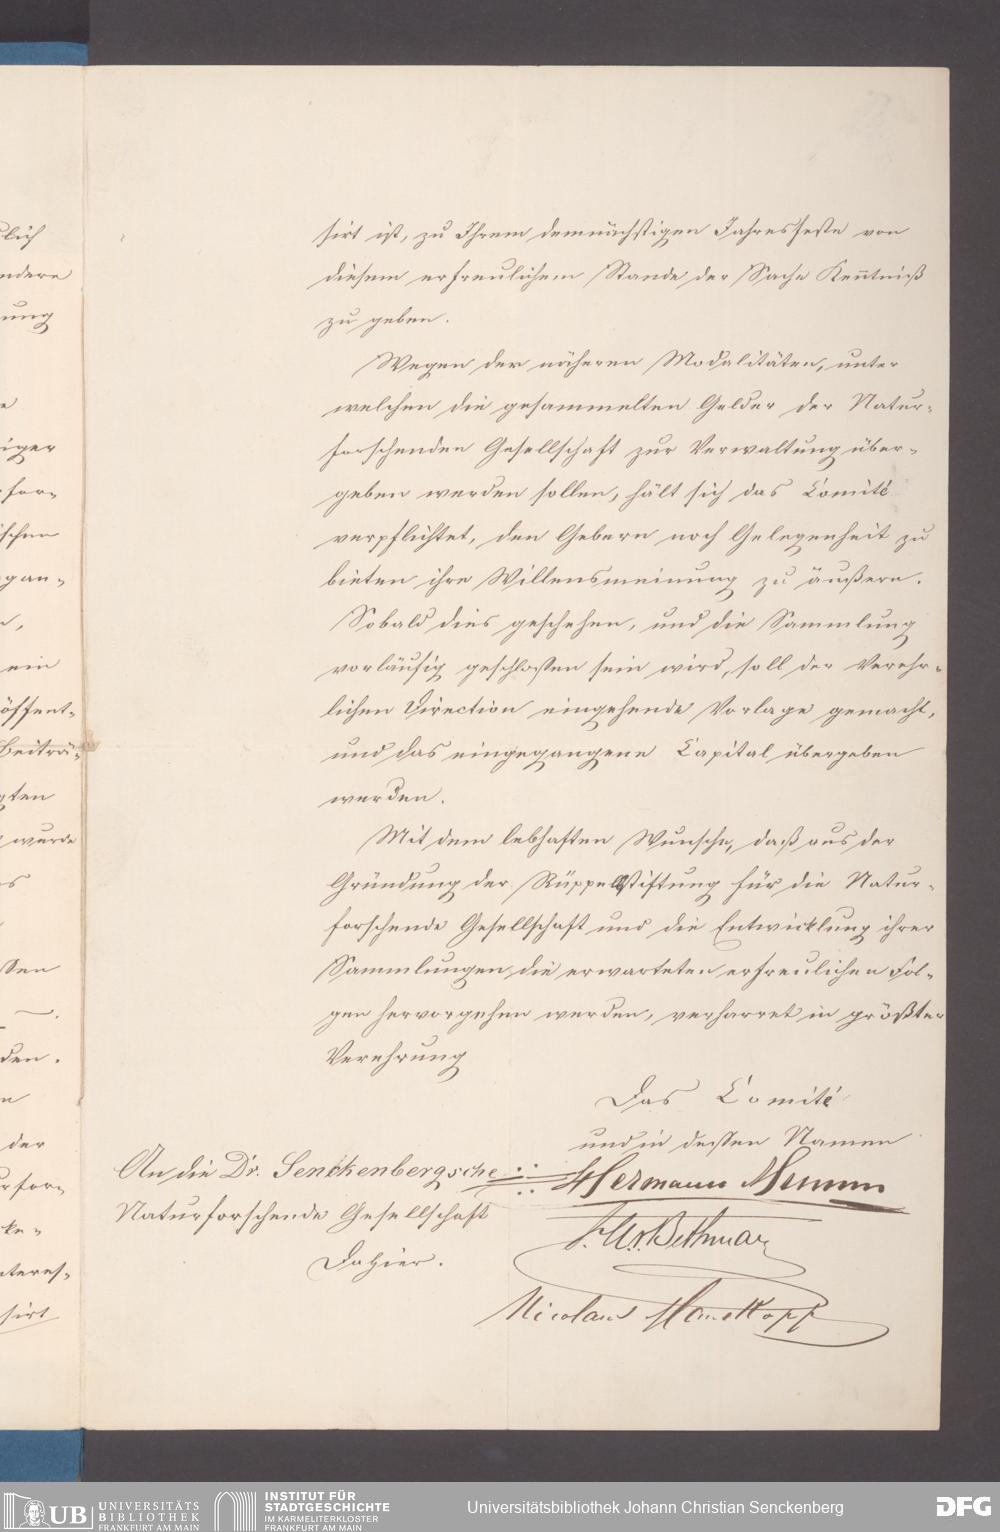 sirt ist, zu Ihrem demnächstigen Jahresfeste von
diesem erfreulichem Stande der Sache Kenntniß
zu geben.
Wegen der näheren Modalitäten, unter
welchen die gesammelten Gelder der Natur-
forschenden Gesellschaft zur Verwaltung über-
geben werden sollen, hält sich das Comité
verpflichtet, den Gebern noch Gelegenheit zu
bieten ihre Willensmeinung zu äußern.
Sobald dies geschehen, und die Sammlung
vorläufig geschlossen sein wird, soll der Verehr-
lichen Direction eingehende Vorlage gemacht,
und das eingegangene Capital übergeben
werden.
Mit dem lebhaften Wunsche, daß aus der
Gründung der Rüppellstiftung für die Natur-
forschende Gesellschaft und die Entwicklung ihrer
Sammlungen die erwarteten erfreulichen Fol-
gen hervorgehen werden, verharret in größter
Verehrung
Das Comité
und in dessen Namen
An die Dr. Senckenbergsche
Hermann Mumm
Naturforschende Gesellschaft
Bethmann
Dahier.
Nicolaus Manskopf
lich
ndere
ung
e
iger
for-
ischen
gan-
n,
ein
öffent-
Beiträ-
ten
wurde
es
ssen
den.
n
der
rfor-
ke-
nteres-
sirt
UB UNIVERSITÄTS
BIBLIOTHEK
FRANKFURT AM MAIN
INSTITUT FÜR
STADTGESCHICHTE
IM KARMELITERKLOSTER
FRANKFURT AM MAIN
Universitätsbibliothek Johann Christian Senckenberg
DFG